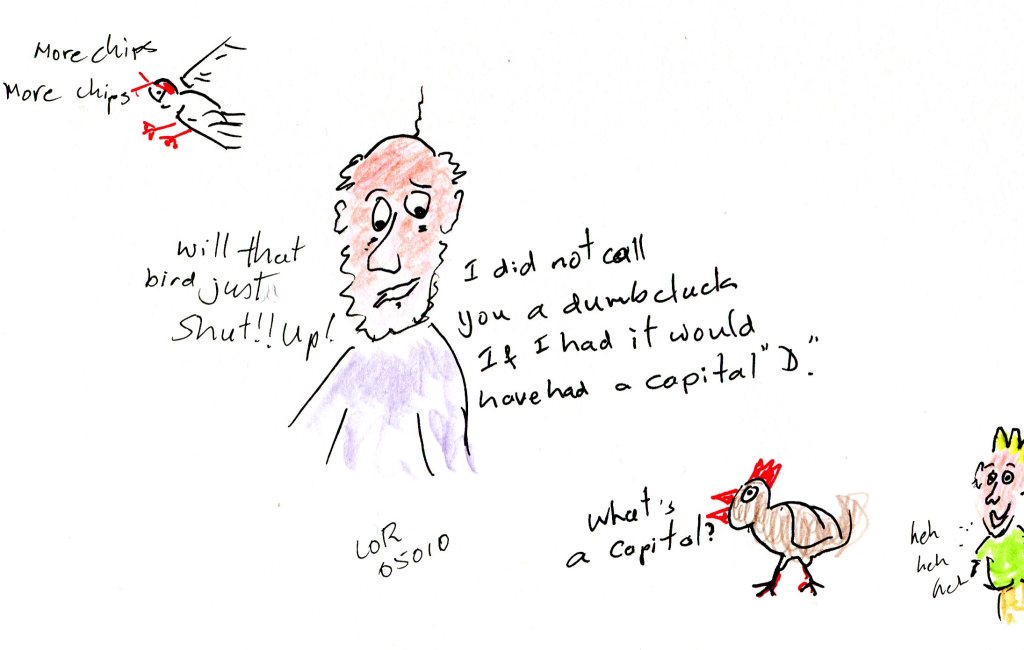 More chips
More chips
will that
bird just
Shut!! Up!
I did not call
you a dumbcluck
If I had it would
have had a capital "D."
What's
a capital?
heh
heh
heh
LOR
05010